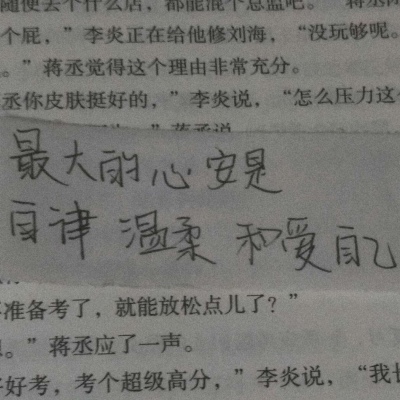 随便去个什么店，都能混个总监吧。”蒋丞
个屁，”李炎正在给他修刘海，“没玩够呢。
。”蒋丞觉得这个理由非常充分。
丞你皮肤挺好的，”李炎说，“怎么压力这个
最大的心安是
自律 温柔 和爱自己
准备考了，就能放松点儿了？”
。”蒋丞应了一声。
好考，考个超级高分，”李炎说，“我